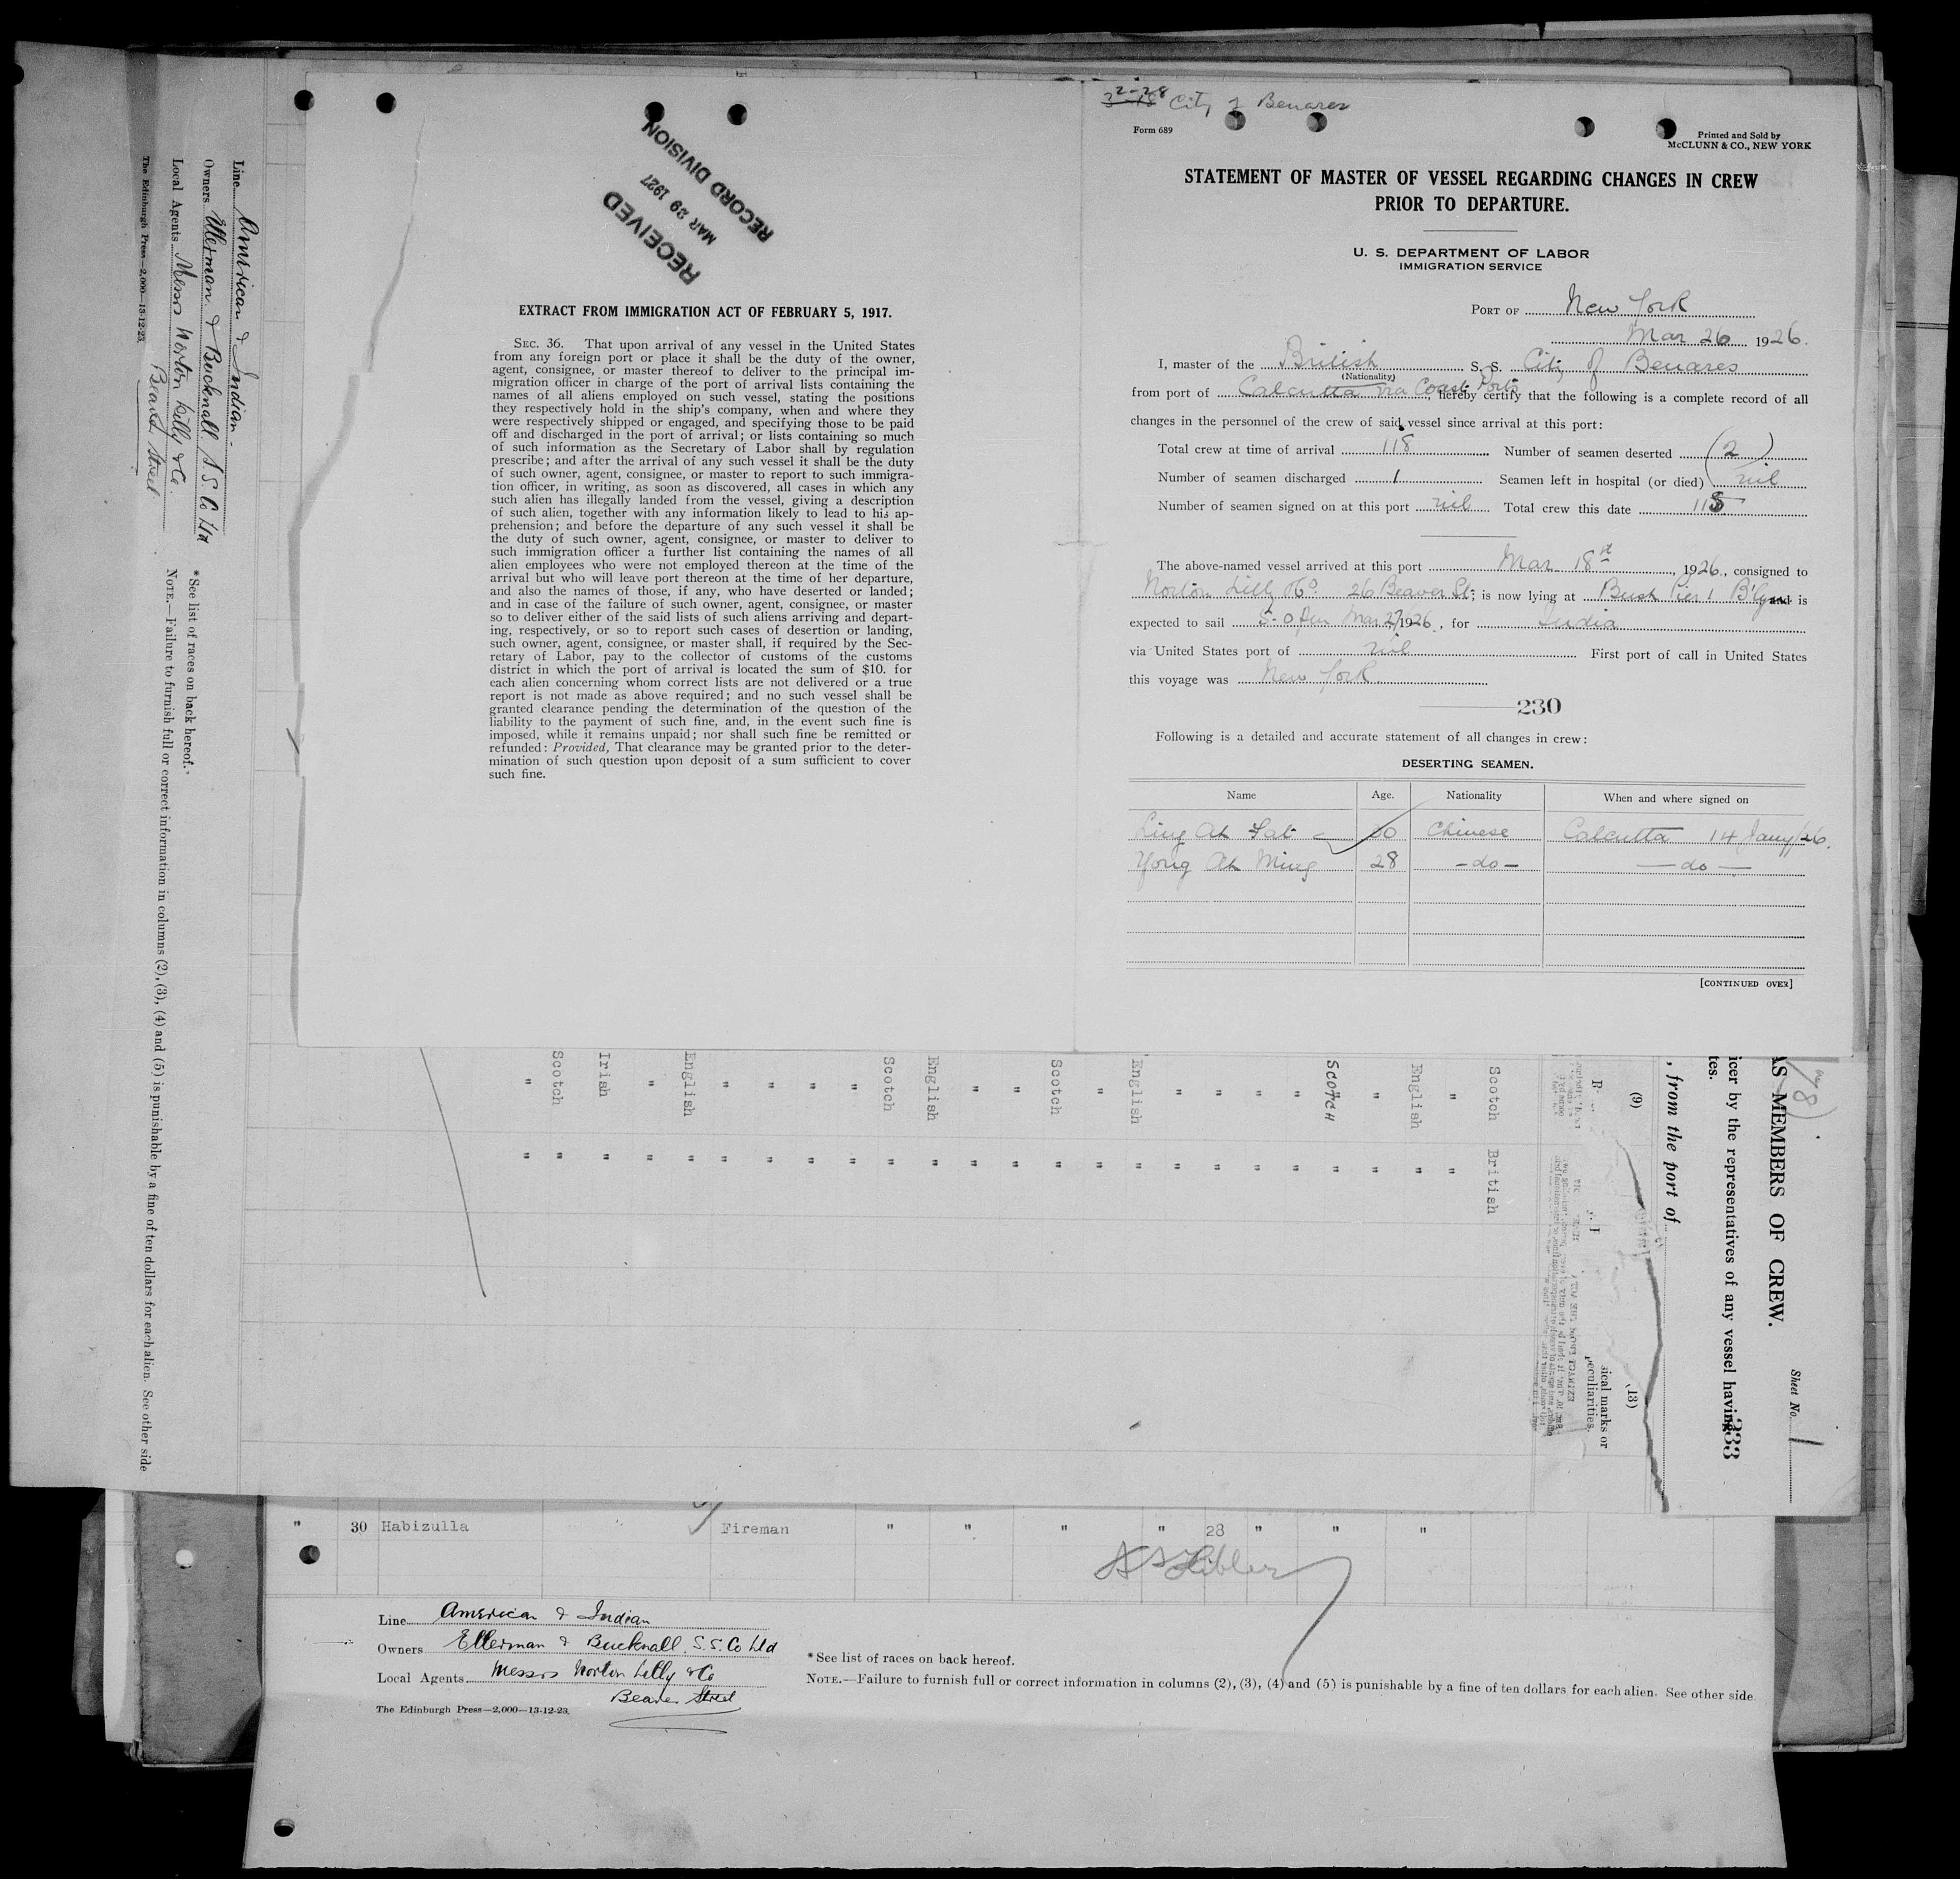 2-28
City of Benares
Form 689
Printed and Sold by
McCLUNN & CO., NEW YORK
STATEMENT OF MASTER OF VESSEL REGARDING CHANGES IN CREW
PRIOR TO DEPARTURE.
U. S. DEPARTMENT OF LABOR
IMMIGRATION SERVICE
PORT OF New York
Mar 26 1926.
I, master of the British S. S. City of Benares
(Nationality)
from port of Calcutta via Coast Ports, hereby certify that the following is a complete record of all
changes in the personnel of the crew of said vessel since arrival at this port:
Total crew at time of arrival 118 Number of seamen deserted (2)
Number of seamen discharged 1 Seamen left in hospital (or died) nil
Number of seamen signed on at this port nil Total crew this date 115
The above-named vessel arrived at this port Mar 18st, 1926, consigned to
Norton Lilly & Co 26 Beaver St; is now lying at Bush Pier 1 B'lyn and is
expected to sail 5-0 pm Mar 27/1926, for India
via United States port of nil First port of call in United States
this voyage was New York
230
Following is a detailed and accurate statement of all changes in crew:
DESERTING SEAMEN.
Name Age. Nationality When and where signed on
Ling Ah Fat 30 Chinese Calcutta 14 Jany/26.
Yong Ah Ming 28 -do- -do-
[CONTINUED OVER]
RECEIVED
MAR 29 1927
RECORD DIVISION
EXTRACT FROM IMMIGRATION ACT OF FEBRUARY 5, 1917.
SEC. 36. That upon arrival of any vessel in the United States
from any foreign port or place it shall be the duty of the owner,
agent, consignee, or master thereof to deliver to the principal im-
migration officer in charge of the port of arrival lists containing the
names of all aliens employed on such vessel, stating the positions
they respectively hold in the ship's company, when and where they
were respectively shipped or engaged, and specifying those to be paid
off and discharged in the port of arrival; or lists containing so much
of such information as the Secretary of Labor shall by regulation
prescribe; and after the arrival of any such vessel it shall be the duty
of such owner, agent, consignee, or master to report to such immigra-
tion officer, in writing, as soon as discovered, all cases in which any
such alien has illegally landed from the vessel, giving a description
of such alien, together with any information likely to lead to his ap-
prehension; and before the departure of any such vessel it shall be
the duty of such owner, agent, consignee, or master to deliver to
such immigration officer a further list containing the names of all
alien employees who were not employed thereon at the time of the
arrival but who will leave port thereon at the time of her departure,
and also the names of those, if any, who have deserted or landed;
and in case of the failure of such owner, agent, consignee, or master
so to deliver either of the said lists of such aliens arriving and depart-
ing, respectively, or so to report such cases of desertion or landing,
such owner, agent, consignee, or master shall, if required by the Sec-
retary of Labor, pay to the collector of customs of the customs
district in which the port of arrival is located the sum of $10. for
each alien concerning whom correct lists are not delivered or a true
report is not made as above required; and no such vessel shall be
granted clearance pending the determination of the question of the
liability to the payment of such fine, and, in the event such fine is
imposed, while it remains unpaid; nor shall such fine be remitted or
refunded: Provided, That clearance may be granted prior to the deter-
mination of such question upon deposit of a sum sufficient to cover
such fine.
Sheet No. 1
AS MEMBERS OF CREW.
icer by the representatives of any vessel having
233
tes.
, from the port of
(9)
(13)
sical marks or
peculiarities.
Scotch British
" "
English "
" "
SCOTCH "
" "
" "
" "
" "
English "
" "
Scotch "
" "
" "
English "
Scotch "
" "
" "
" "
" "
English "
" "
Irish "
Scotch "
" "
Line American & Indian.
Owners Ellerman & Bucknall S.S. Co Ltd
Local Agents Messrs Norton Lilly & Co.
Beaver Street
The Edinburgh Press—2,000—13-12-23.
*See list of races on back hereof.
NOTE.—Failure to furnish full or correct information in columns (2), (3), (4) and (5) is punishable by a fine of ten dollars for each alien. See other side
" 30 Habizulla Fireman " " " " 28 " " "
Line American & Indian
Owners Ellerman & Bucknall S.S. Co Ltd
Local Agents Messrs Norton Lilly & Co
Beaver Street
The Edinburgh Press—2,000—13-12-23.
*See list of races on back hereof.
NOTE.—Failure to furnish full or correct information in columns (2), (3), (4) and (5) is punishable by a fine of ten dollars for each alien. See other side